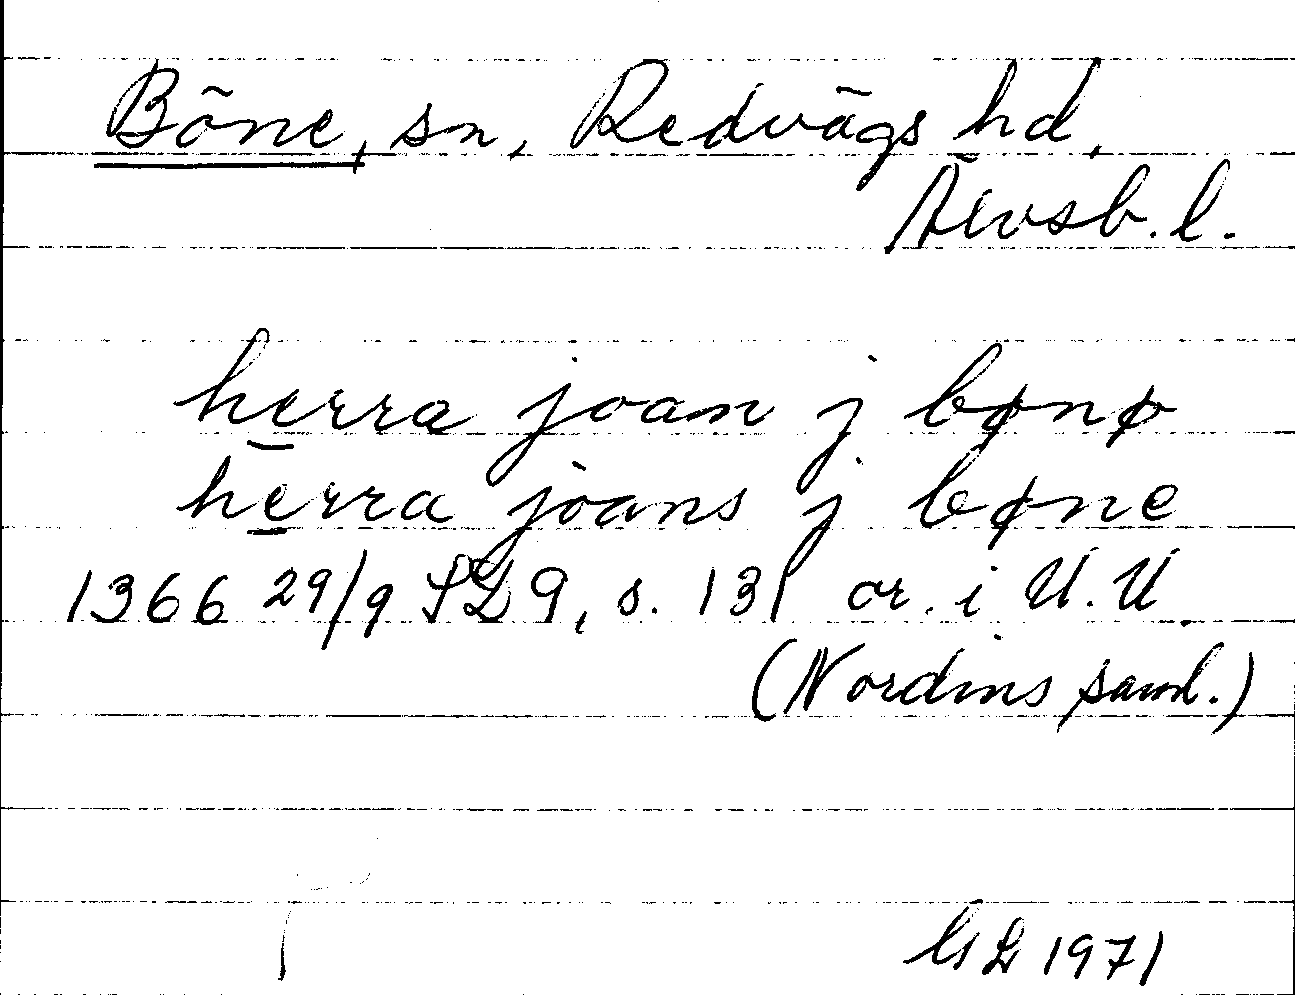 Böne, sn, Redvägs hd,
Älvsb. l.
herra joan j bønø
herra joans j bøne
1366 29/9 SD 9, s. 131 or. i U.U.
(Nordins saml.)
GL 1971